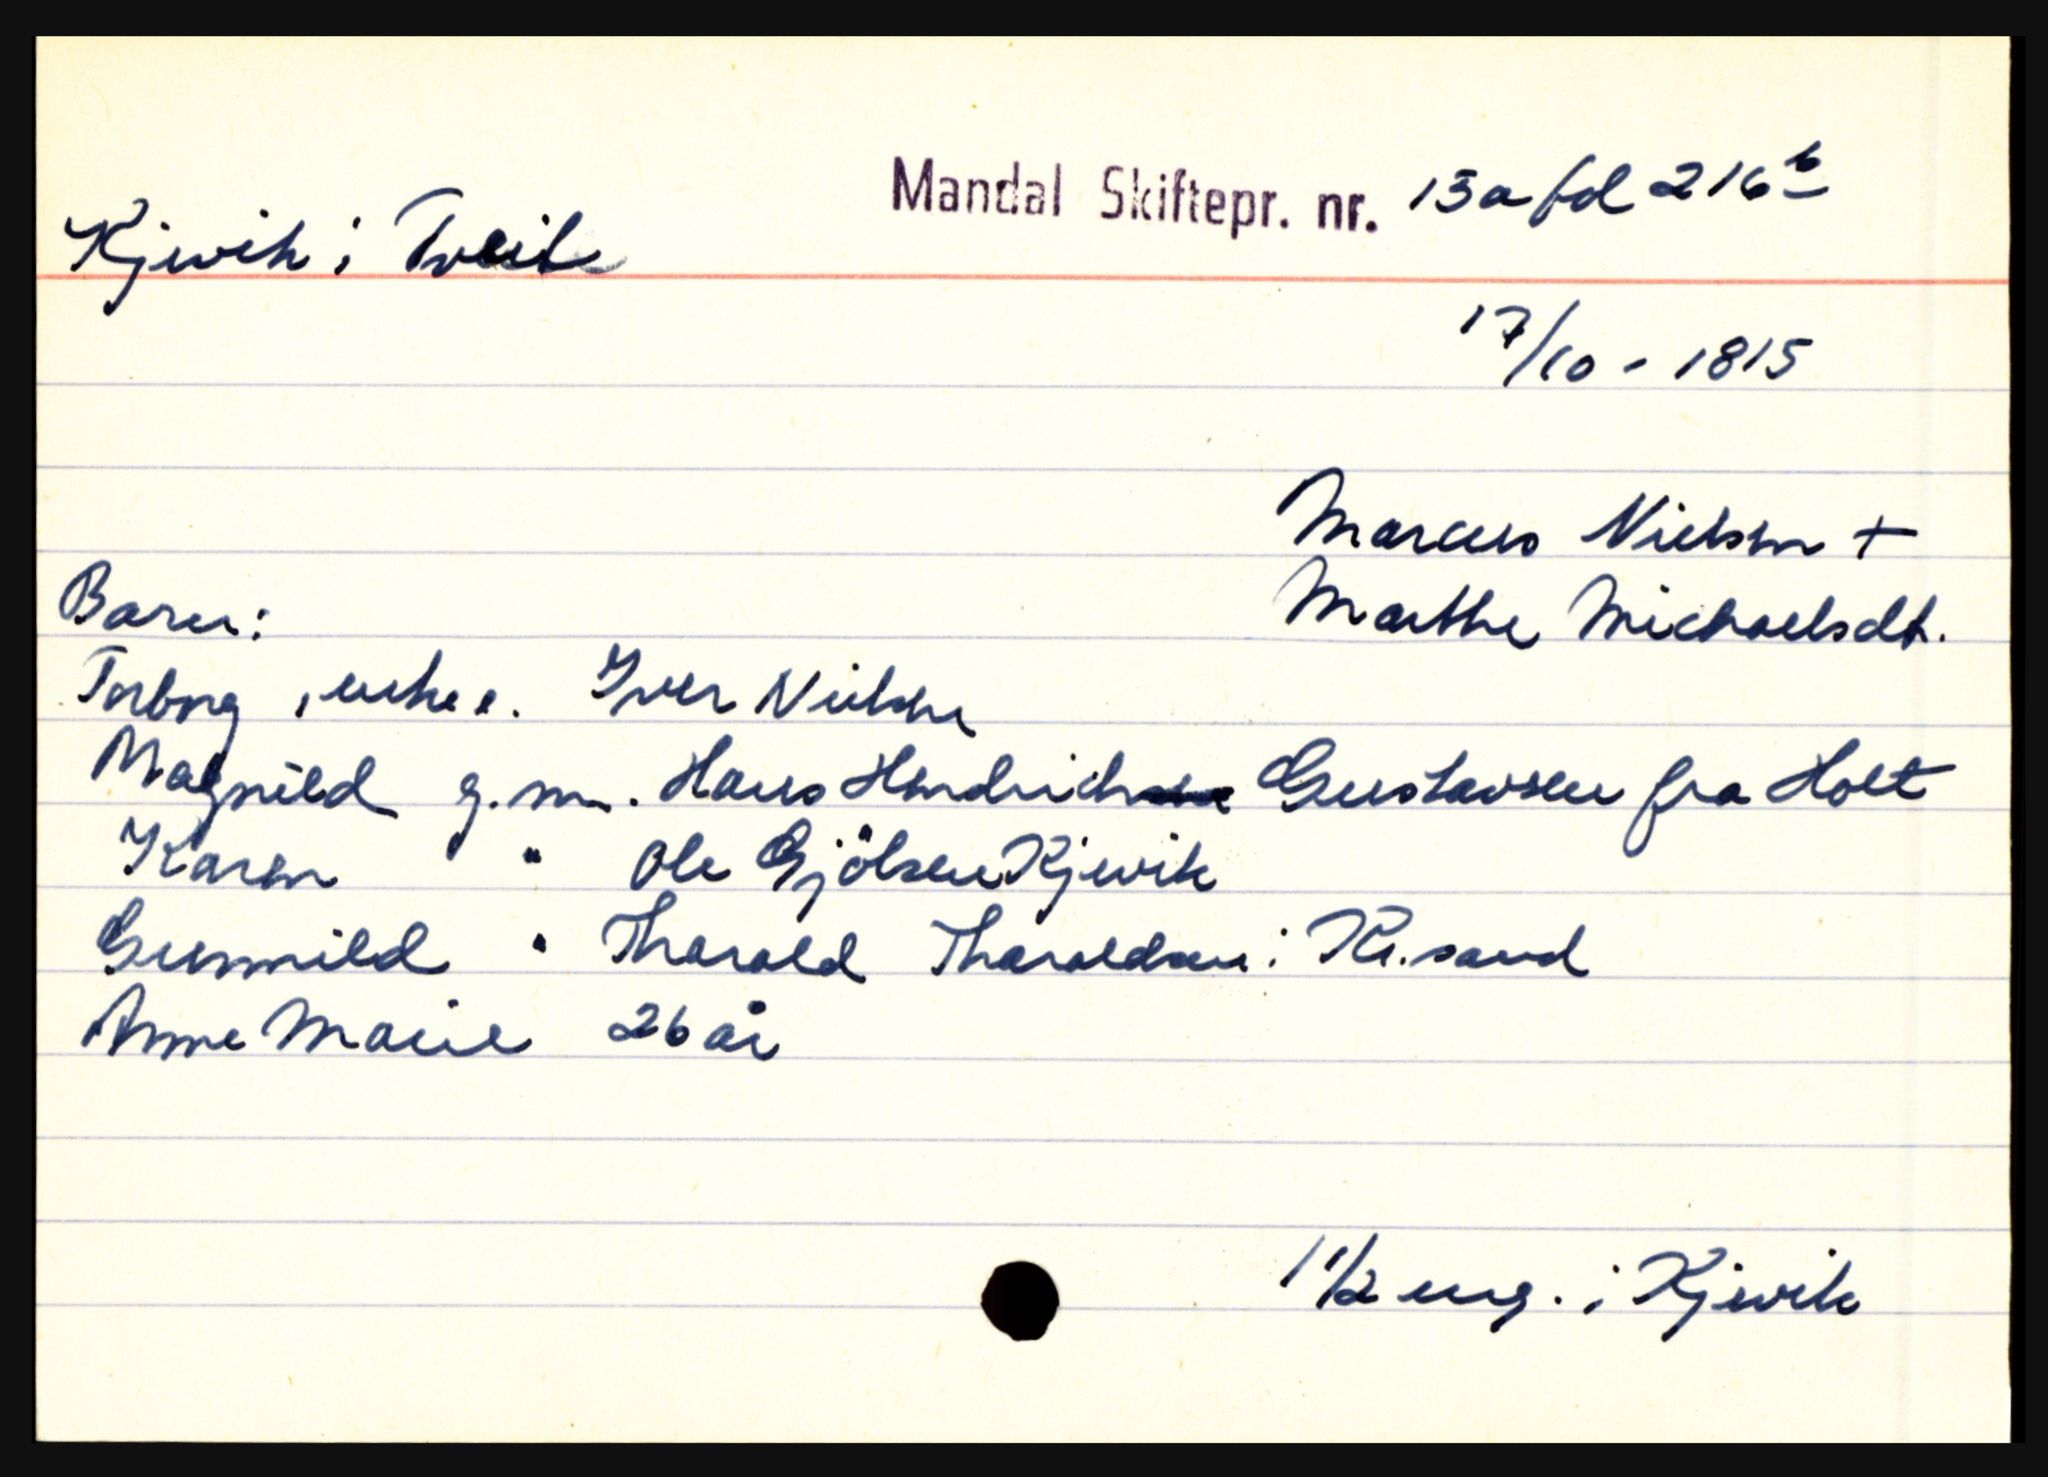 Mandal Skiftepr. nr. 15a fol 216b
Kjevik i Tveit
17/10 - 1815
Marcus Nielsen +
Marthe Michaelsdt.
Barn:
Torborg, enke e. Iver Nielsen
Magnild g.m. Hans Hendrich Gustavsen fra Holt
Karen " Ole Gjölsen Kjevik
Gunnild " Tharald Tharaldsen i Kr.sand
Anne Marie 26 år
1 1/2 eng. i Kjevik